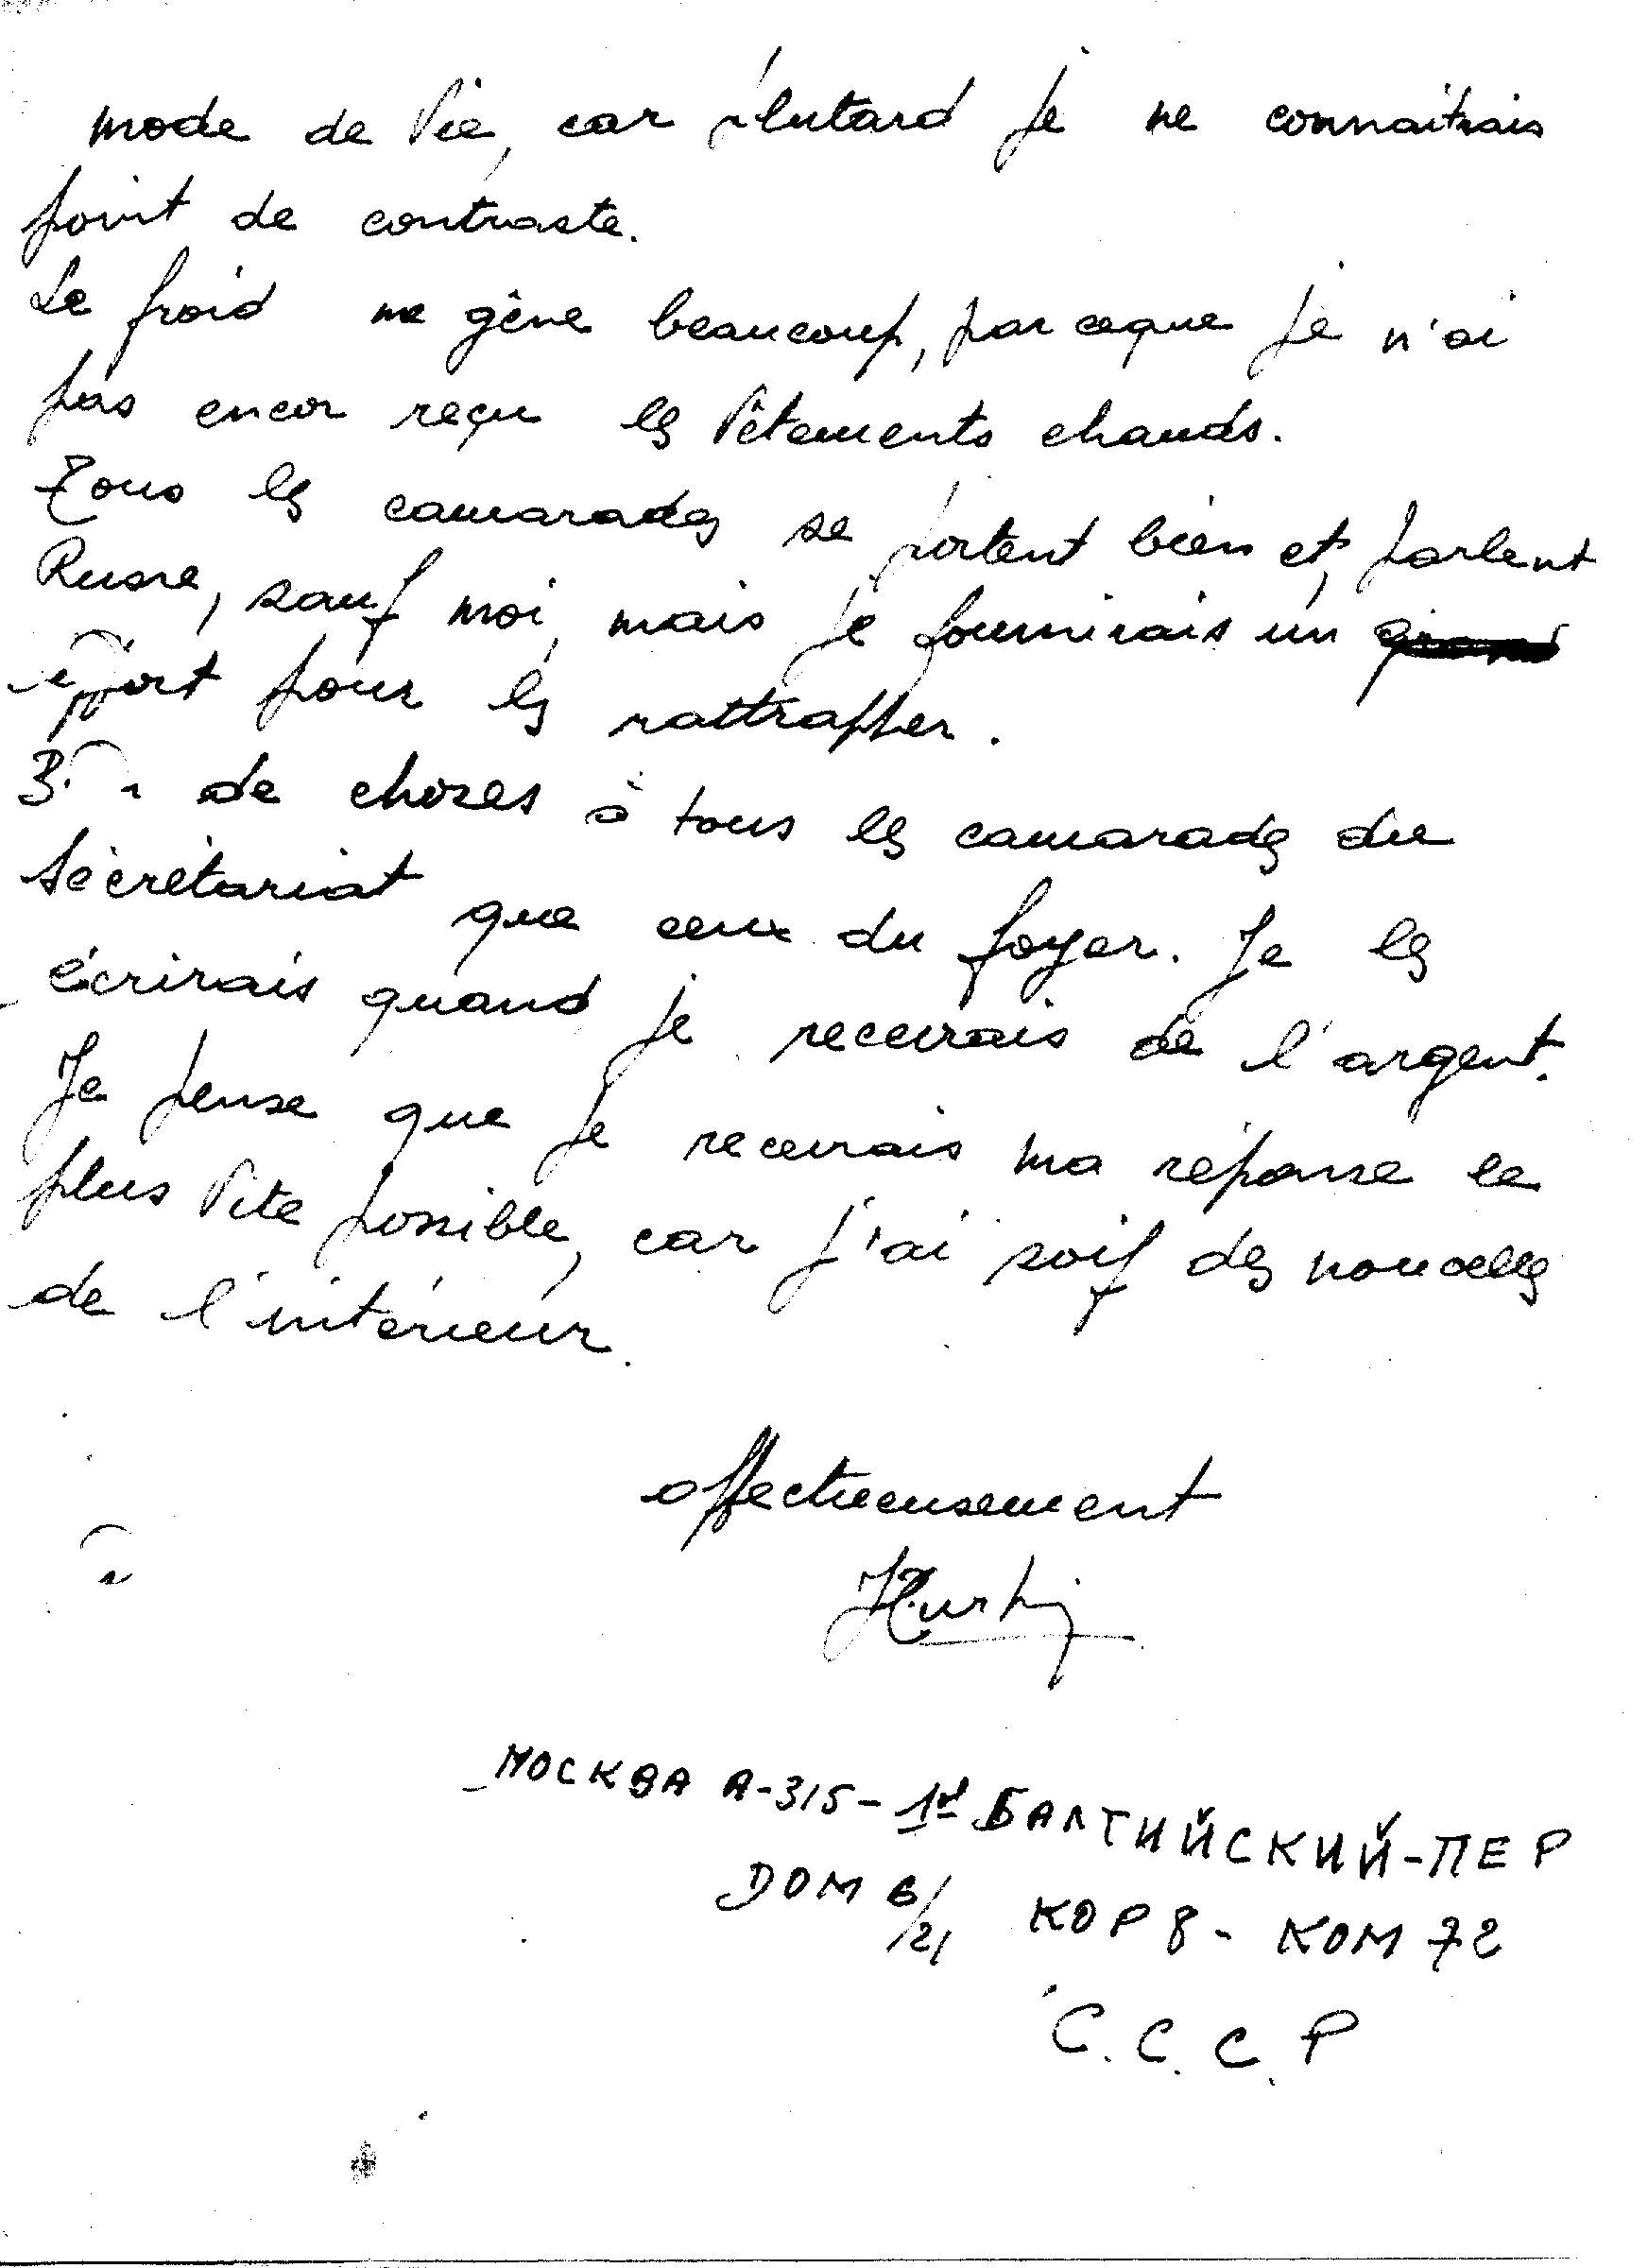 mode de vie, car plutard je ne connaitrais
point de contraste.
Le froid me gêne beaucoup, parceque je n'ai
pas encor reçu les vêtements chauds.
Tous les camarades se portent bien et, parlent
Russe, sauf moi, mais je fournirais un
effort pour les rattrapper.
de choses à tous les camarades du
Sécrétariat que ceux du foyer. Je les
écrirais quand je recevrais de l'argent.
Je pense que je recevrais ma réponse le
plus vite possible, car j'ai soif des nouvelles
de l'intérieur.
affectueusement
МОСКВА А-315-1й БАЛТИЙСКИЙ-ПЕР
ДОМ 6/21 КОР 8 - КОМ 72
С.С.С.Р